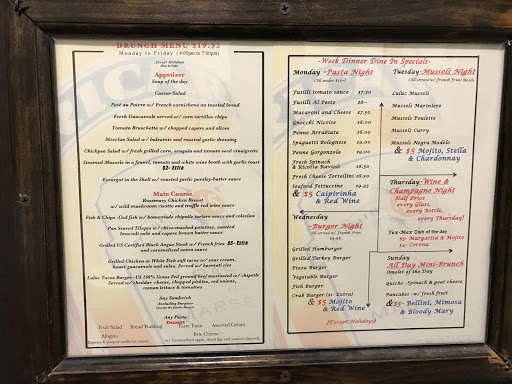 DRUNCH MENU $19.95
Monday to Friday (4:00pm to 7:00pm)
(Except Holidays)
Dine In Only
Appetizer
Soup of the day
Caesar Salad
Paté au Poivre w/ French cornichons on toasted bread
Fresh Guacamole served w/ corn tortillas chips
Tomato Bruschetta w/ chopped capers and olives
Mesclun Salad w/ balsamic and roasted garlic dressing
Chickpea Salad w/ fresh grilled corn, arugula and tomato seed vinaigrette
Steamed Mussels in a fennel, tomato and white wine broth with garlic toast
$2- Extra
Escargot in the Shell w/ roasted garlic parsley-butter sauce
Main Course
Rosemary Chicken Breast
w/ wild mushroom risotto and truffle red wine sauce
Fish & Chips -Cod fish w/ homemade chipotle tartare sauce and coleslaw
Pan Seared Tilapia w/ chive-mashed potatoes, sautéed
broccoli rabe and capers brown butter sauce
Grilled US Certified Black Angus Steak w/ French fries $5- Extra
and caramelized onion sauce
Grilled Chicken or White Fish soft tacos w/ sour cream,
house guacamole and salsa. Served w/ basmati rice
Luluc Tacos Burger- US 100% Grass Fed ground beef marinated w/ chipotle
Served w/ cheddar cheese, chopped pickles, red onions,
roman lettuce & tomatoes
Any Sandwich
Any Pasta
Dessert
Fruit Salad Bread Pudding Tarte Tatin Assorted Gelato
Affogato
Brie Cheese
-Week Dinner Dine In Specials-
Monday -Pasta Night
Fusilli tomato sauce 17.50
Fusilli Al Pesto 18-
Macaroni and Cheese 17.50
Gnocchi Nicoise 18.00
Penne Arrabiata 18.00
Spaguetti Bolognese 19.00
Penne Gorgonzola 19.00
Fresh Spinach
& Ricotta Ravioli 18.50
Fresh Cheese Tortellini 18.50
Seafood Fettuccine 19.95
& $5 Caipirinha
& Red Wine
Wednesday
-Burger Night
All served w/ French Fries
Grilled Hamburger
Grilled Turkey Burger
Pizza Burger
Vegetable Burger
Fish Burger
Crab Burger ($2- Extra)
& $5 Mojito
& Red Wine
(Except Holidays)
Tuesday-Mussels Night
(All served w/ French Fries)
Luluc Mussels
Mussels Mariniere
Mussels Poulette
Mussels Curry
Mussels Negra Modelo
& $5 Mojito, Stella
& Chardonnay
Thursday-Wine &
Champagne Night
Half Price
every Glass,
every Bottle,
every Thursday!
Tex-Mex Dish of the day
$5- Margarita & Mojito
$4- Corona
Sunday
All Day Mini-Brunch
Omelet of the Day
Quiche -Spinach & goat cheese
Pancakes -w/ fresh fruit
& $5- Bellini, Mimosa
& Bloody Mary